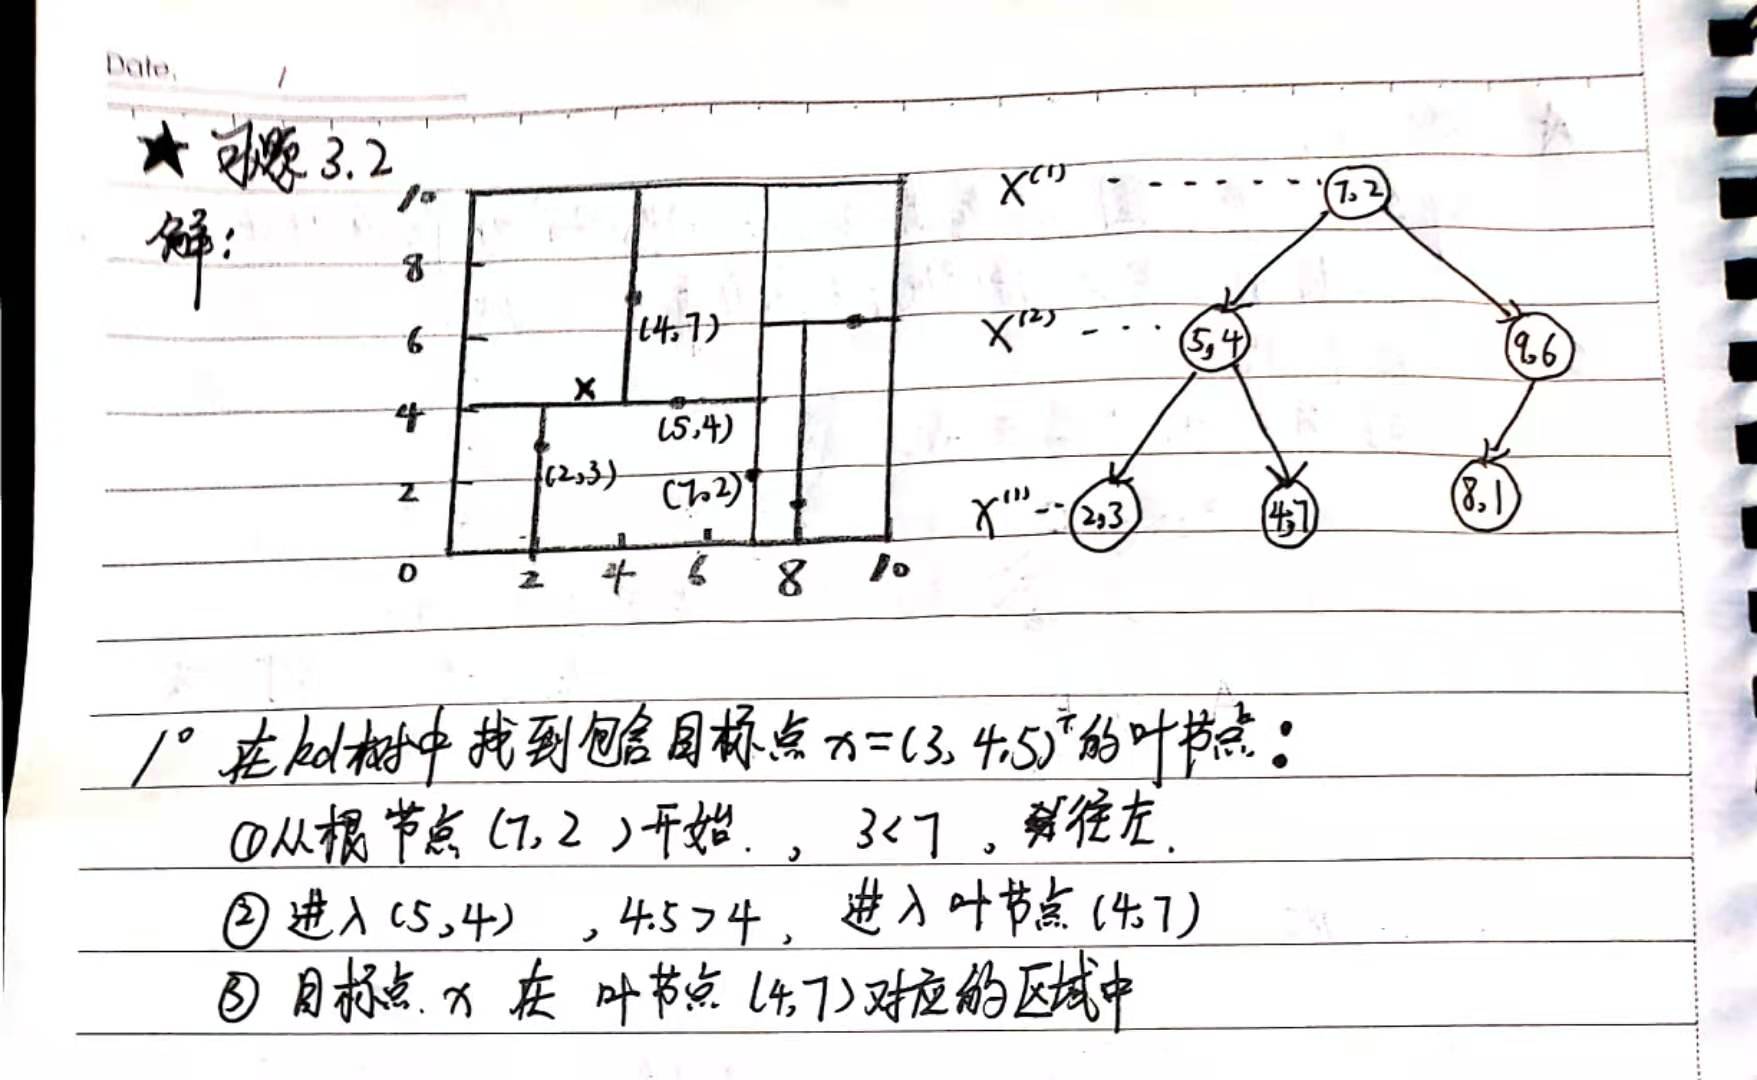 Date. /
★ 习题 3.2
解:
10
8
6
4
2
0 2 4 6 8 10
(4,7)
x
(5,4)
(2,3)
(7,2)
X⁽¹⁾ 7,2
X⁽²⁾ 5,4 9,6
X⁽¹⁾ 2,3 4,7 8,1
1° 在kd树中找到包含目标点 x=(3,4.5)ᵀ的叶节点:
①从根节点(7,2)开始., 3<7, 往左.
②进入(5,4) , 4.5>4, 进入叶节点(4,7)
③ 目标点 x 在 叶节点(4,7)对应的区域中